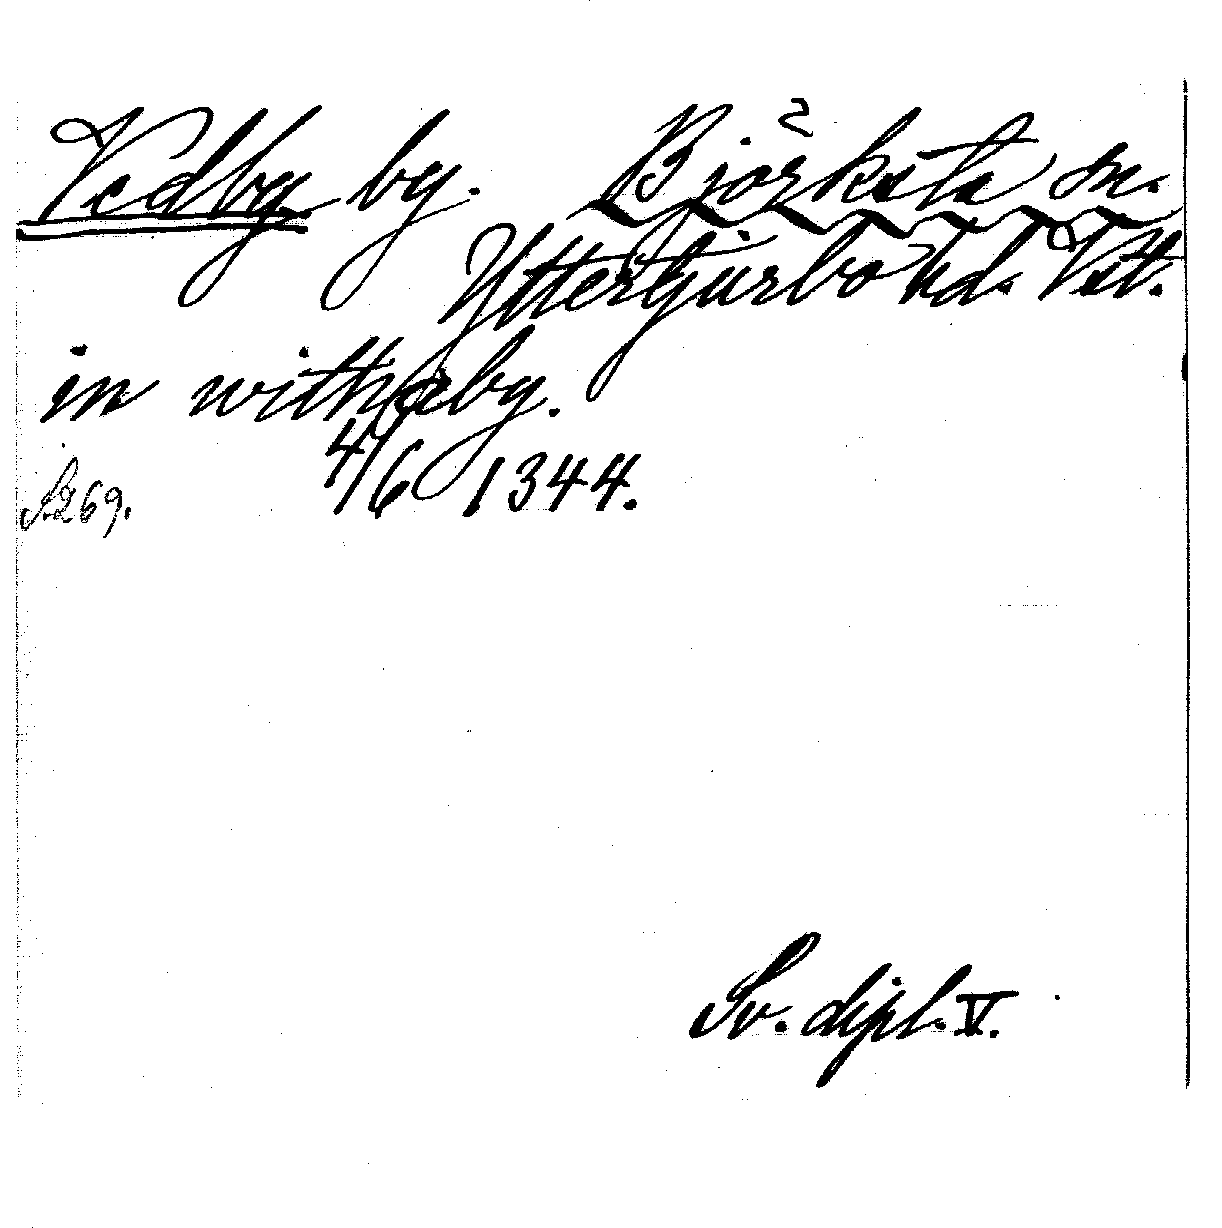 Vedby by. Björksta sn.
Yttertjurbo hd. Vstl.
in withæby.
4/6 1344.
S. 269.
Sv. dipl. V.